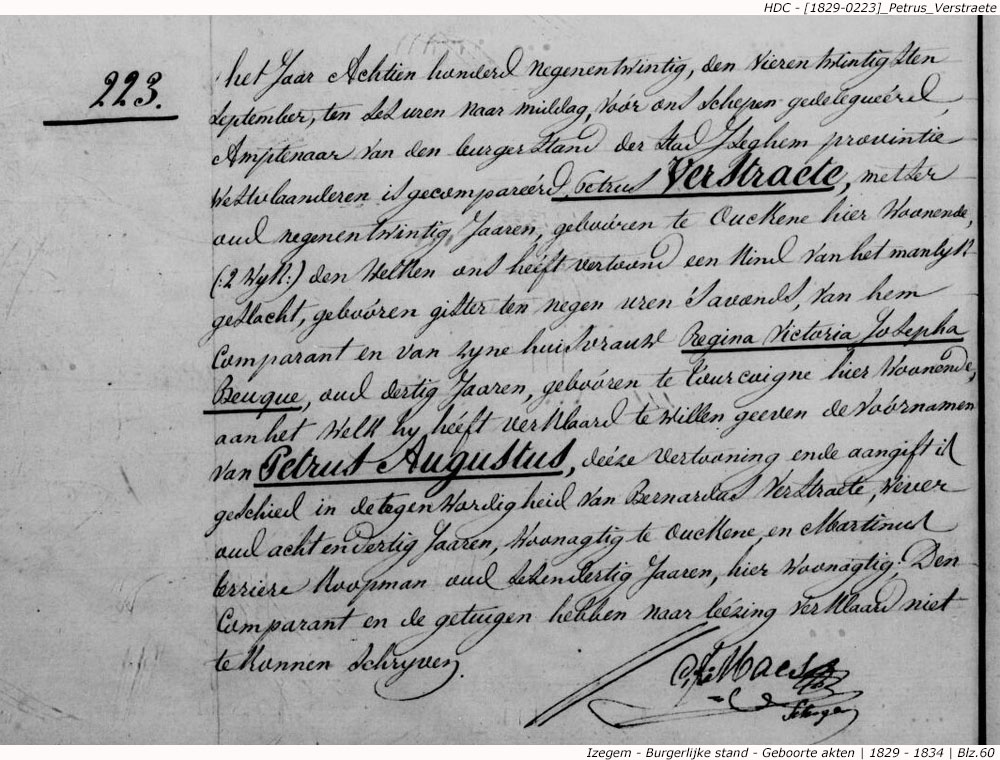 HDC - [1829-0223]_Petrus_Verstraete
223.
het Jaar Achtien honderd negenentwintig, den vierentwintigsten
September, ten ses uren naar middag, voór ons schepen gedelegueérd
Amptenaar van den burgerstand der Stad Iseghem provintie
Westvlaanderen is gecompareérd, Petrus Verstraete, metser
oud negenentwintig Jaaren, gebooren te Ouckene hier woonende,
(:2 Wyk:) den welken ons heéft vertoond een kind van het manlyk
geslacht, gebooren gister ten negen uren s'avonds, van hem
Comparant en van zyne huisvrauw Regina Victoria Josepha
Beuque, oud dertig Jaaren, gebooren te Tourcoigne hier woonende,
aan het welk hy heéft verklaard te willen geeven de voórnamen
van Petrus Augustus, deéze vertooning ende aangift is
geschied in de tegenwordigheid van Bernardus Verstraete, wever
oud achtendertig Jaaren, woonagtig te Ouckene, en Martinus
terriere koopman oud sesendertig Jaaren, hier woonagtig. Den
Comparant en de getuigen hebben naar leézing verklaard niet
te konnen schryven
Maes
Schepen
Izegem - Burgerlijke stand - Geboorte akten | 1829 - 1834 | Blz.60